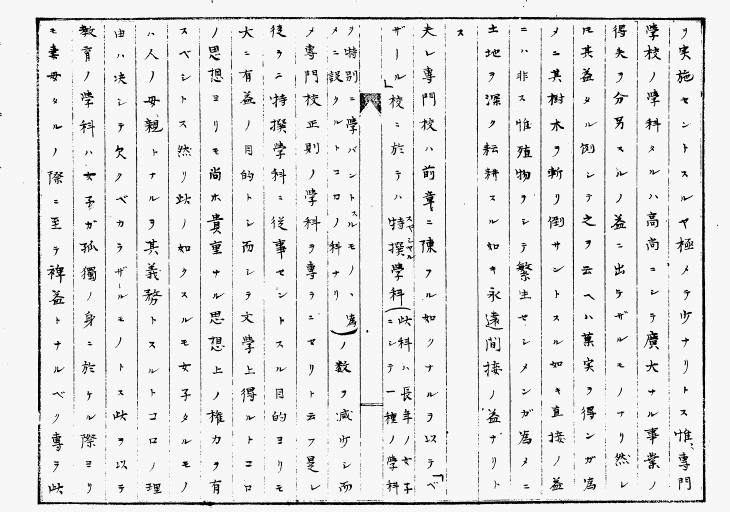 ヲ実施セントスルヤ極メテ少ナリトス惟、専門
学校ノ學科タルハ高尚ニシテ廣大ナル事業ノ
得失ヲ分另スルノ益ニ出デザルモノナリ然レ
ㇹ其益タル倒シテ之ヲ云ヘハ葉実ヲ得ンガ為
メニ其樹木ヲ斬リ倒サントスル如キ直接ノ益
ニハ非ス惟殖物ヲシテ繁生セシメンガ為メニ
土地ヲ深ク耘耕スル如キ永遠間接ノ益ナリト
ス
夫レ専門校ハ前章ニ陳ヲル如クナルヲ以テ「ベ
ザール」校ニ於テハ特撰學科(此科ハ長年ノ女子
スペシヤル
ニシテ一種ノ學科
ヲ特別ニ學バントスルモノヽ為
メニ設クルトコロノ科ナリ)ノ数ヲ減少シ而
メ専門校正則ノ學科ヲ專ラニセリト云フ是レ
徒ラニ特撰學科ニ従事セントスル目的ヨリモ
大ニ有益ノ目的トシ而シテ文學上得ルトコロ
ノ思想ヨリモ尚ホ貴重ナル思想上ノ権力ヲ有
スベシトス然リ此ノ如クスルモ女子タルモノ
ハ人ノ母親トナルヲ其義務トスルトコロノ理
由ハ决シテ欠クベカラザールモノトス此ヲ以テ
教育ノ學科ハ女子ガ孤獨ノ身ニ於ケル際ヨリ
モ妻母タルノ際ニ至テ裨益トナルベク専ラ此